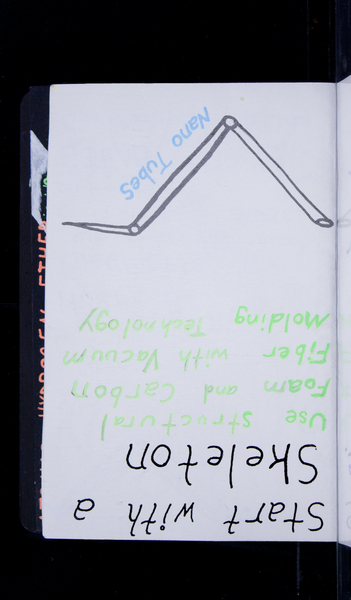 Start with a
Skeleton
Use structural
Foam and Carbon
Fiber with Vacuum
Molding Technology
Nano Tubes
HYDROGEN ETHER